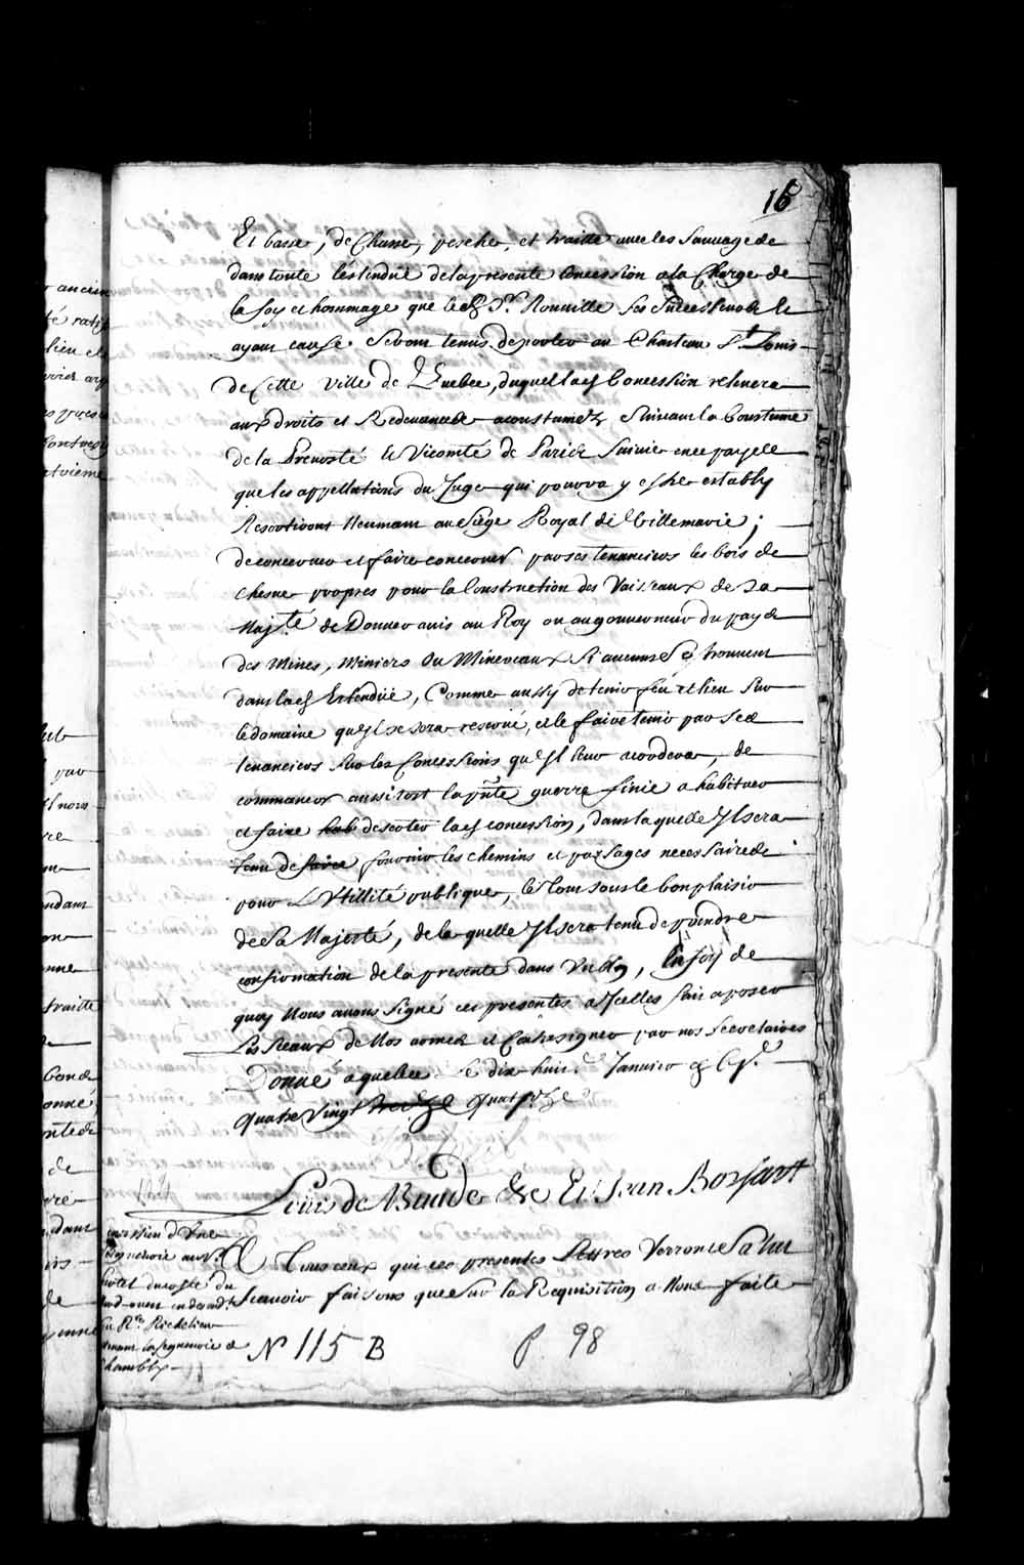 16
Et basse, de Chasse, pesche, et traitte avec les Sauvages
dans toute lestendue de la presente Concession a la Charge de
la foy et hommage que led. Sr. Rouville ses Successeurs et
ayant cause seront tenus de porter au Chasteau St. Louis
de Cette ville de Quebec, duquel lad. Concession relevera
aux droits et Redevances acoustumez Suivant la Coustume
de la Prevosté et Vicomté de Paris Suivie en ce payse
que les appellations du Juge qui pourra y estre estably
Resortiront Nuemant au siege Royal de Villemarie;
de concerver et faire concerver par ses tenanciers les bois de
chesne propres pour la Construction des Vaisseaux de Sa
Majté. de Donner avis au Roy ou au gouverneur du pays
des Mines, Miniers ou Mineraux si aucunes se trouvent
dans lad. Estendüe, Comme aussy de tenir feu et lieu sur
le domaine quil se sera reservé, et le faire tenir par ses
tenanciers sur les Concessions quil leur acordera, de
commancer aussitost la pnte guerre finie a habituer
et faire hab deserter lad. concession, dans laquelle Il sera
tenu de faire fournir les chemins et passages necessaires
pour L'Utillité publique, le tout sous le bon plaisir
de Sa Majesté, de laquelle Il sera tenu de prendre
confirmation de la presente dans Un An, En foy de
quoy Nous avons Signé ces presentes a Icelles fait aposer
Les Sceaux de Nos armes et Contresigner par nos Secretaires
Donné a quebec le dix huit. Janvier
quatre Vingt treize quatorze
Louis de Buade &c Et Jean Bochart
A Tous ceux qui ces presentes Lettres Verront Salut
Scavoir faisons que sur la Requisition a Nous faite
du coste du
Richelieu
la Seigneurie de
Chambly
N 115 B
p. 98